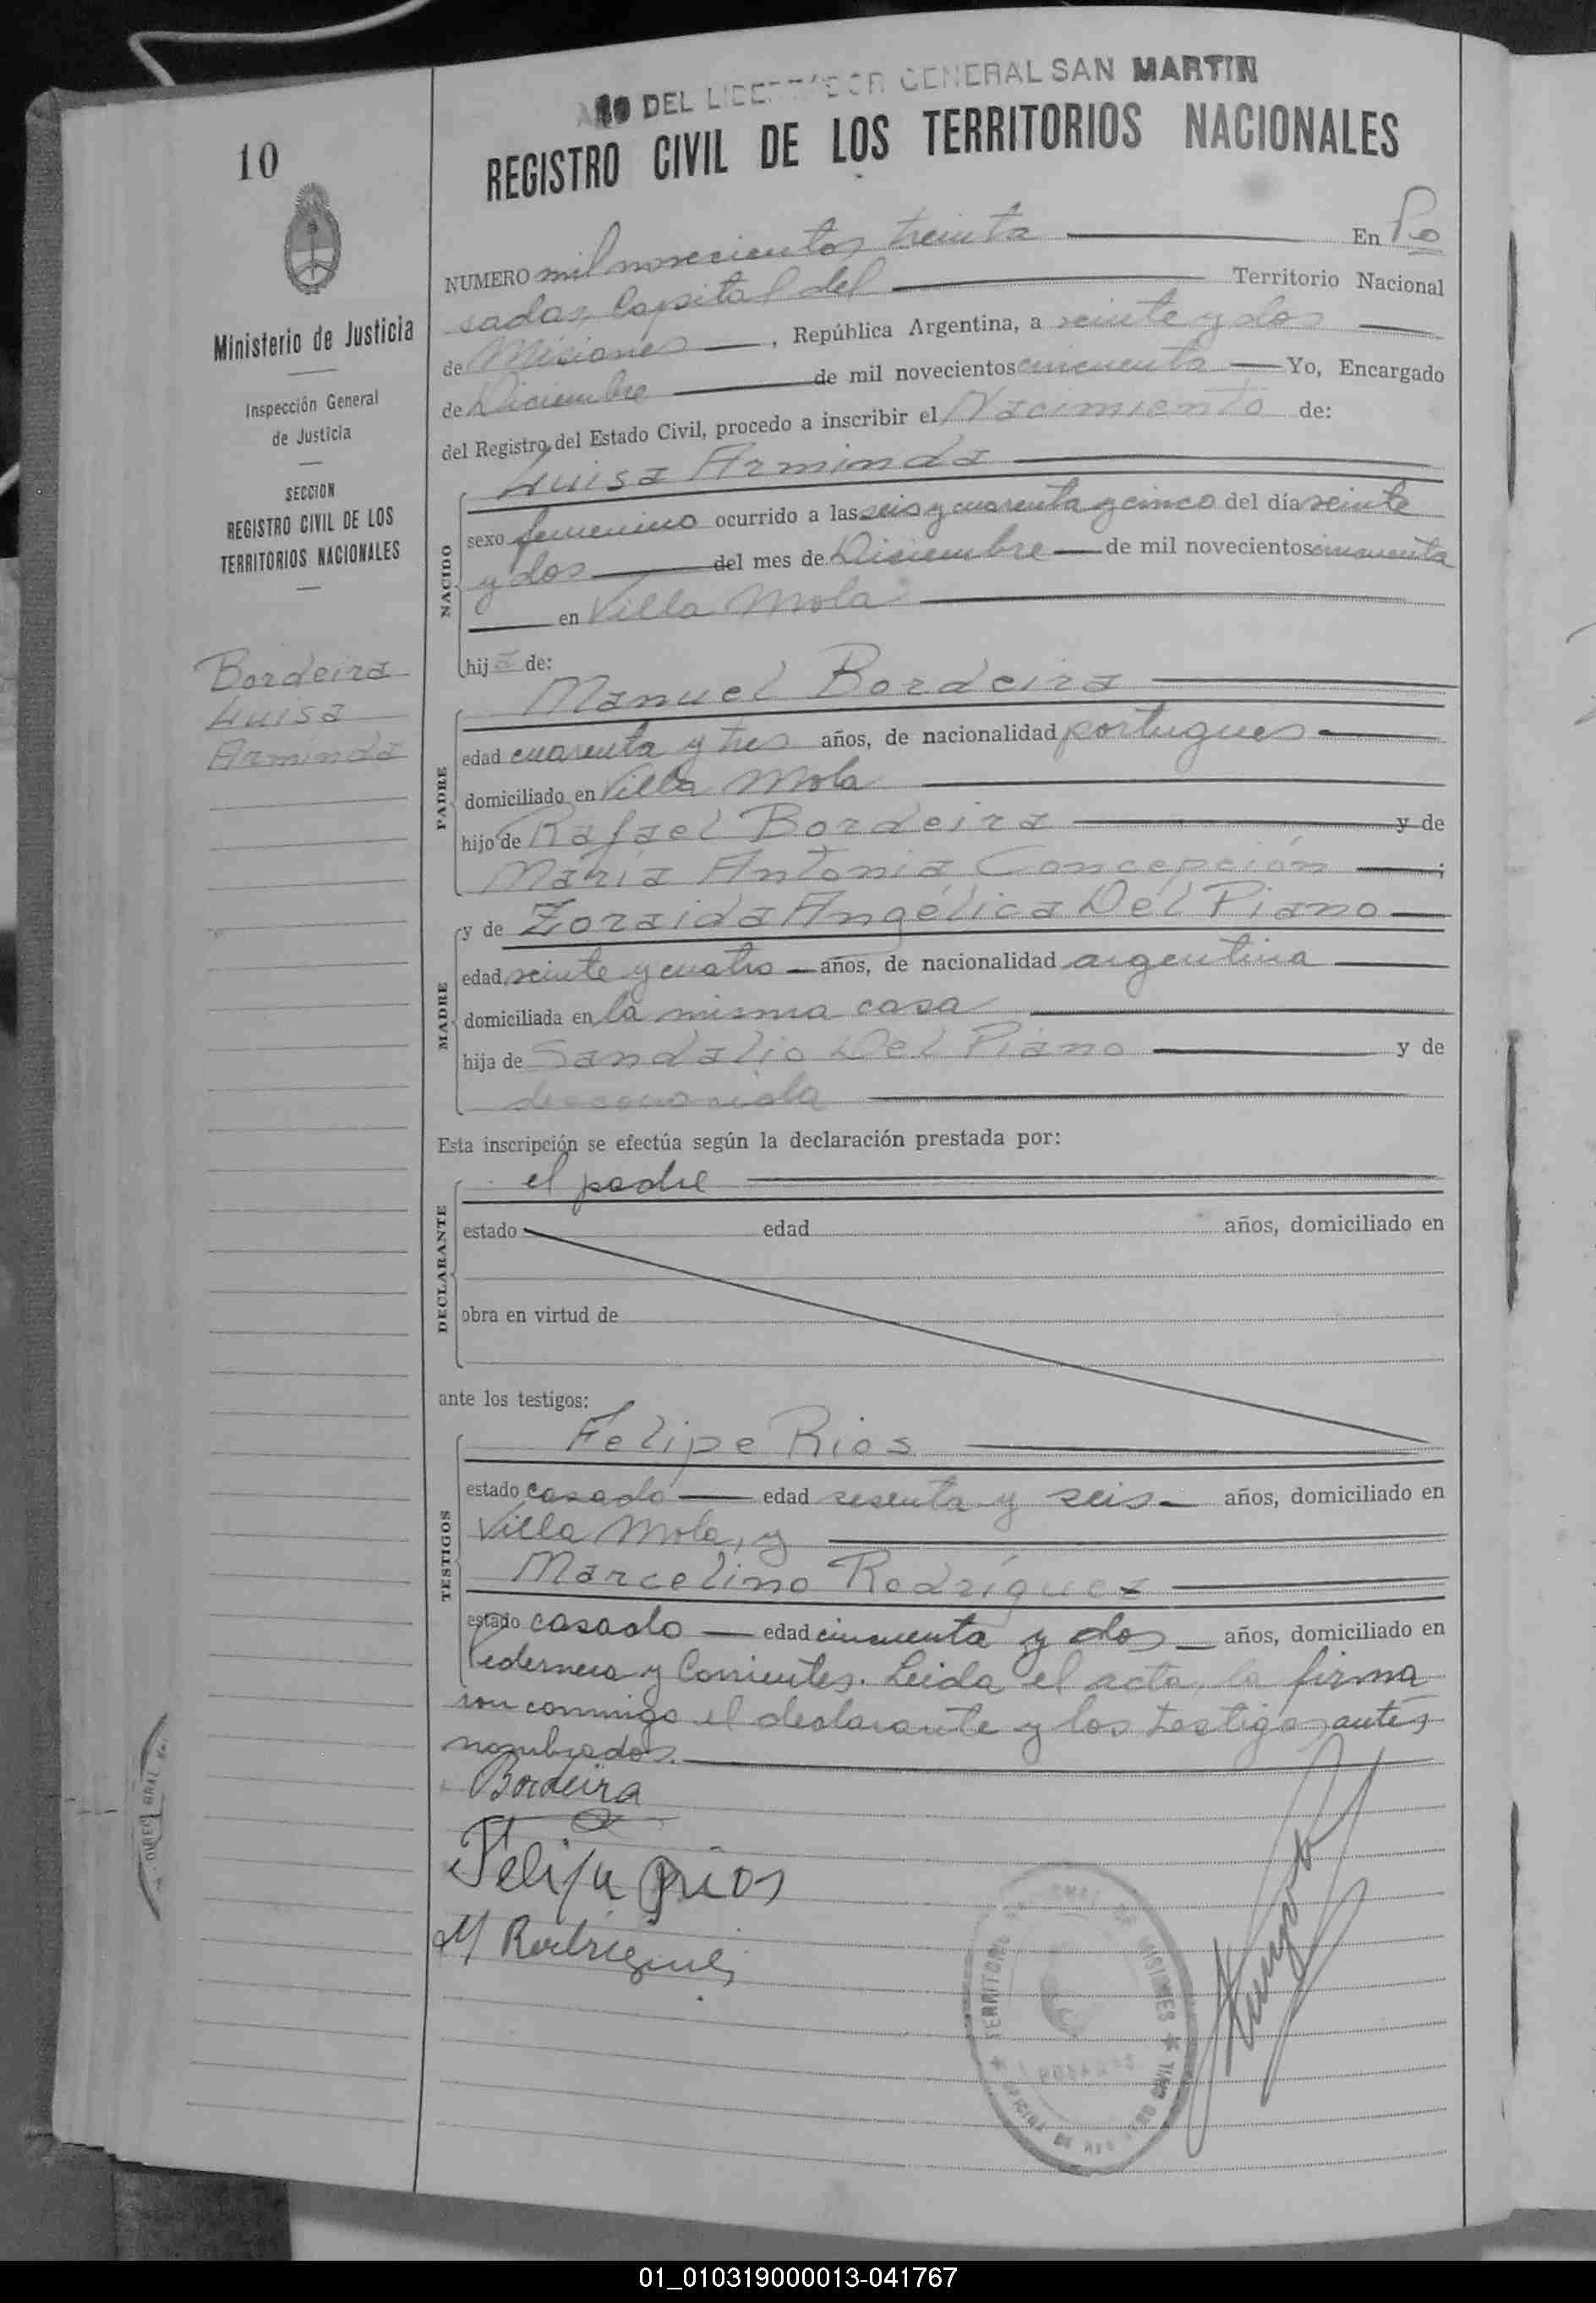 AÑO DEL LIBERTADOR GENERAL SAN MARTIN
REGISTRO CIVIL DE LOS TERRITORIOS NACIONALES
10
Ministerio de Justicia
Inspección General
de Justicia
SECCION
REGISTRO CIVIL DE LOS
TERRITORIOS NACIONALES
Bordeira
Luisa
Arminda
NUMERO mil novecientos treinta En Po
sadas, Capital del Territorio Nacional
de Misiones, República Argentina, a veinte y dos
de Diciembre de mil novecientos cincuenta Yo, Encargado
del Registro del Estado Civil, procedo a inscribir el Nacimiento de:
Luisa Arminda
NACIDO
sexo femenino ocurrido a las seis y cuarenta y cinco del día veinte
y dos del mes de Diciembre de mil novecientos cincuenta
en Villa Mola
hija de:
Manuel Bordeira
PADRE
edad cuarenta y tres años, de nacionalidad portugues
domiciliado en Villa Mola
hijo de Rafael Bordeira y de
María Antonia Concepción ;
MADRE
y de Zoraida Angélica Del Piano
edad veinte y cuatro años, de nacionalidad argentina
domiciliada en la misma casa
hija de Sandalio Del Piano y de
desconocida
Esta inscripción se efectúa según la declaración prestada por:
el padre
DECLARANTE
estado edad años, domiciliado en
obra en virtud de
ante los testigos:
Felipe Rios
TESTIGOS
estado casado edad sesenta y seis años, domiciliado en
Villa Mola, y
Marcelino Rodríguez
estado casado edad cincuenta y dos años, domiciliado en
Pedernera y Corrientes. Leida el acta, la firma
ron conmigo el declarante y los testigos antes
nombrados.
Bordeira
Felipe Rios
M Rodriguez
TERRITORIO MISIONES
POSADAS
OFICINA DE REGISTRO CIVIL
DIREC. GRAL.
01_010319000013-041767